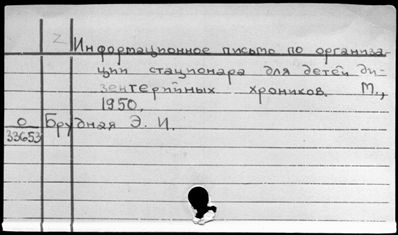 2
Информационное письмо по организа-
ции стационара для детей ди-
зентерийных хроников. М.,
1950.
0
33653
Брудная Э. И.